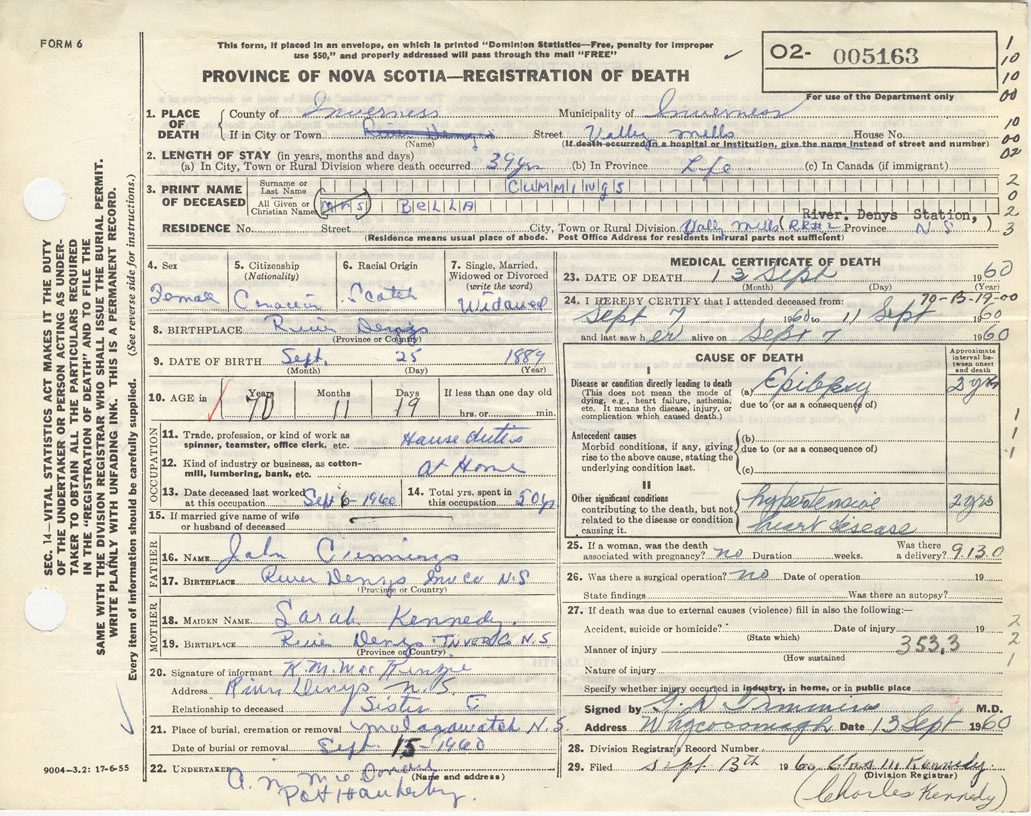 FORM 6
This form, if placed in an envelope, on which is printed "Dominion Statistics—Free, penalty for improper
use $50," and properly addressed will pass through the mail "FREE"
PROVINCE OF NOVA SCOTIA—REGISTRATION OF DEATH
O2- 005163
For use of the Department only
1
10
10
00
10
00
02
2
0
2
3
1. PLACE OF DEATH
County of Inverness Municipality of Inverness
If in City or Town River Denys Street Vally Mills House No.
(Name) (If death occurred in a hospital or institution, give the name instead of street and number)
2. LENGTH OF STAY (in years, months and days)
(a) In City, Town or Rural Division where death occurred 39 yrs (b) In Province Life (c) In Canada (if immigrant)
3. PRINT NAME OF DECEASED
Surname or Last Name CUMMINGS
All Given or Christian Names Mrs BELLA
RESIDENCE No. Street City, Town or Rural Division Vally Mills RR#2 (River Denys Station,) Province N S
(Residence means usual place of abode. Post Office Address for residents in rural parts not sufficient)
4. Sex
Female
5. Citizenship
(Nationality)
6. Racial Origin
Scotch
7. Single, Married, Widowed or Divorced
(write the word)
Widowed
8. BIRTHPLACE River Denys
(Province or Country)
9. DATE OF BIRTH Sept. 25 1889
(Month) (Day) (Year)
10. AGE in Years Months Days If less than one day old
70 11 19 hrs. or min.
OCCUPATION
11. Trade, profession, or kind of work as spinner, teamster, office clerk, etc. House duties
12. Kind of industry or business, as cotton-mill, lumbering, bank, etc. at Home
13. Date deceased last worked at this occupation Sept 6-1960
14. Total yrs. spent in this occupation 50 yrs
15. If married give name of wife or husband of deceased
FATHER
16. NAME John Cummings
17. BIRTHPLACE River Denys Inv Co N.S
(Province or Country)
MOTHER
18. MAIDEN NAME Sarah Kennedy
19. BIRTHPLACE River Denys N.S
(Province or Country)
20. Signature of informant K. M. MacKenzie
Address River Denys N.S.
Relationship to deceased Sister
21. Place of burial, cremation or removal Malagawatch N.S.
Date of burial or removal Sept. 15-1960
22. UNDERTAKER A. N McDonald
(Name and address)
Port Hawkesbury.
MEDICAL CERTIFICATE OF DEATH
23. DATE OF DEATH 13 Sept 1960
(Month) (Day) (Year)
70-B-19-00
24. I HEREBY CERTIFY that I attended deceased from:
Sept 7 1960 to 11 Sept 1960
and last saw her alive on Sept 7 1960
CAUSE OF DEATH
Approximate interval between onset and death
I
Disease or condition directly leading to death
(This does not mean the mode of dying, e.g., heart failure, asthenia, etc. It means the disease, injury, or complication which caused death.)
(a) Epilepsy 2 yrs
due to (or as a consequence of)
Antecedent causes
Morbid conditions, if any, giving rise to the above cause, stating the underlying condition last.
(b)
due to (or as a consequence of)
(c)
II
Other significant conditions contributing to the death, but not related to the disease or condition causing it.
hypertensive 2 yrs
heart disease
1
1
1
25. If a woman, was the death associated with pregnancy? no Duration weeks. Was there a delivery? 9130
26. Was there a surgical operation? no Date of operation 19
State findings Was there an autopsy?
27. If death was due to external causes (violence) fill in also the following:—
Accident, suicide or homicide? Date of injury 19
(State which)
Manner of injury 353,3
(How sustained)
Nature of injury
2
2
1
Specify whether injury occurred in industry, in home, or in public place
Signed by M.D.
Address Whycocomagh Date 13 Sept 1960
28. Division Registrar's Record Number
29. Filed Sept. 13th 1960 Chas M Kennedy
(Division Registrar)
(Charles Kennedy)
SEC. 14—VITAL STATISTICS ACT MAKES IT THE DUTY
OF THE UNDERTAKER OR PERSON ACTING AS UNDER-
TAKER TO OBTAIN ALL THE PARTICULARS REQUIRED
IN THE "REGISTRATION OF DEATH" AND TO FILE THE
SAME WITH THE DIVISION REGISTRAR WHO SHALL ISSUE THE BURIAL PERMIT.
WRITE PLAINLY WITH UNFADING INK. THIS IS A PERMANENT RECORD.
Every item of information should be carefully supplied. (See reverse side for instructions.)
9004—3.2: 17-6-55